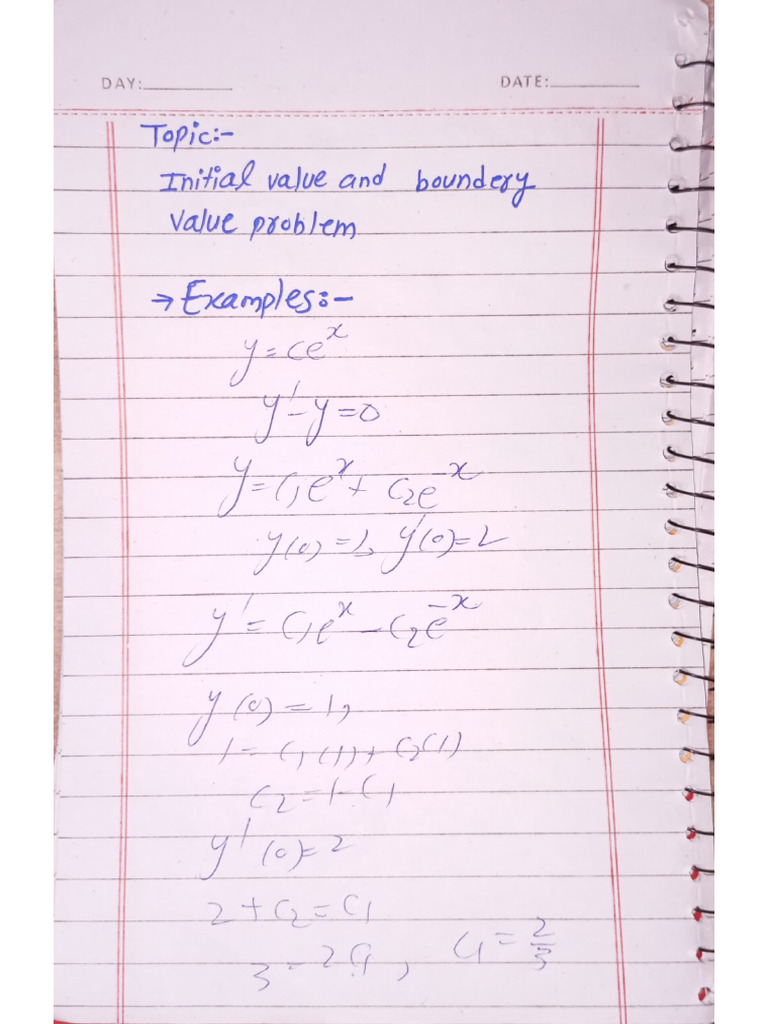 DAY: DATE:
Topic:-
Initial value and boundery
value problem
→ Examples:-
y=ce^x
y'-y=0
y=c₁e^x+ c₂e^-x
y(0)=1, y'(0)=2
y' = c₁e^x - c₂e^-x
y(0) = 1,
1 = c₁(1)+ c₂(1)
c₂ = 1-c₁
y'(0)=2
2+c₂=c₁
3 = 2c₁, c₁ = 2/3